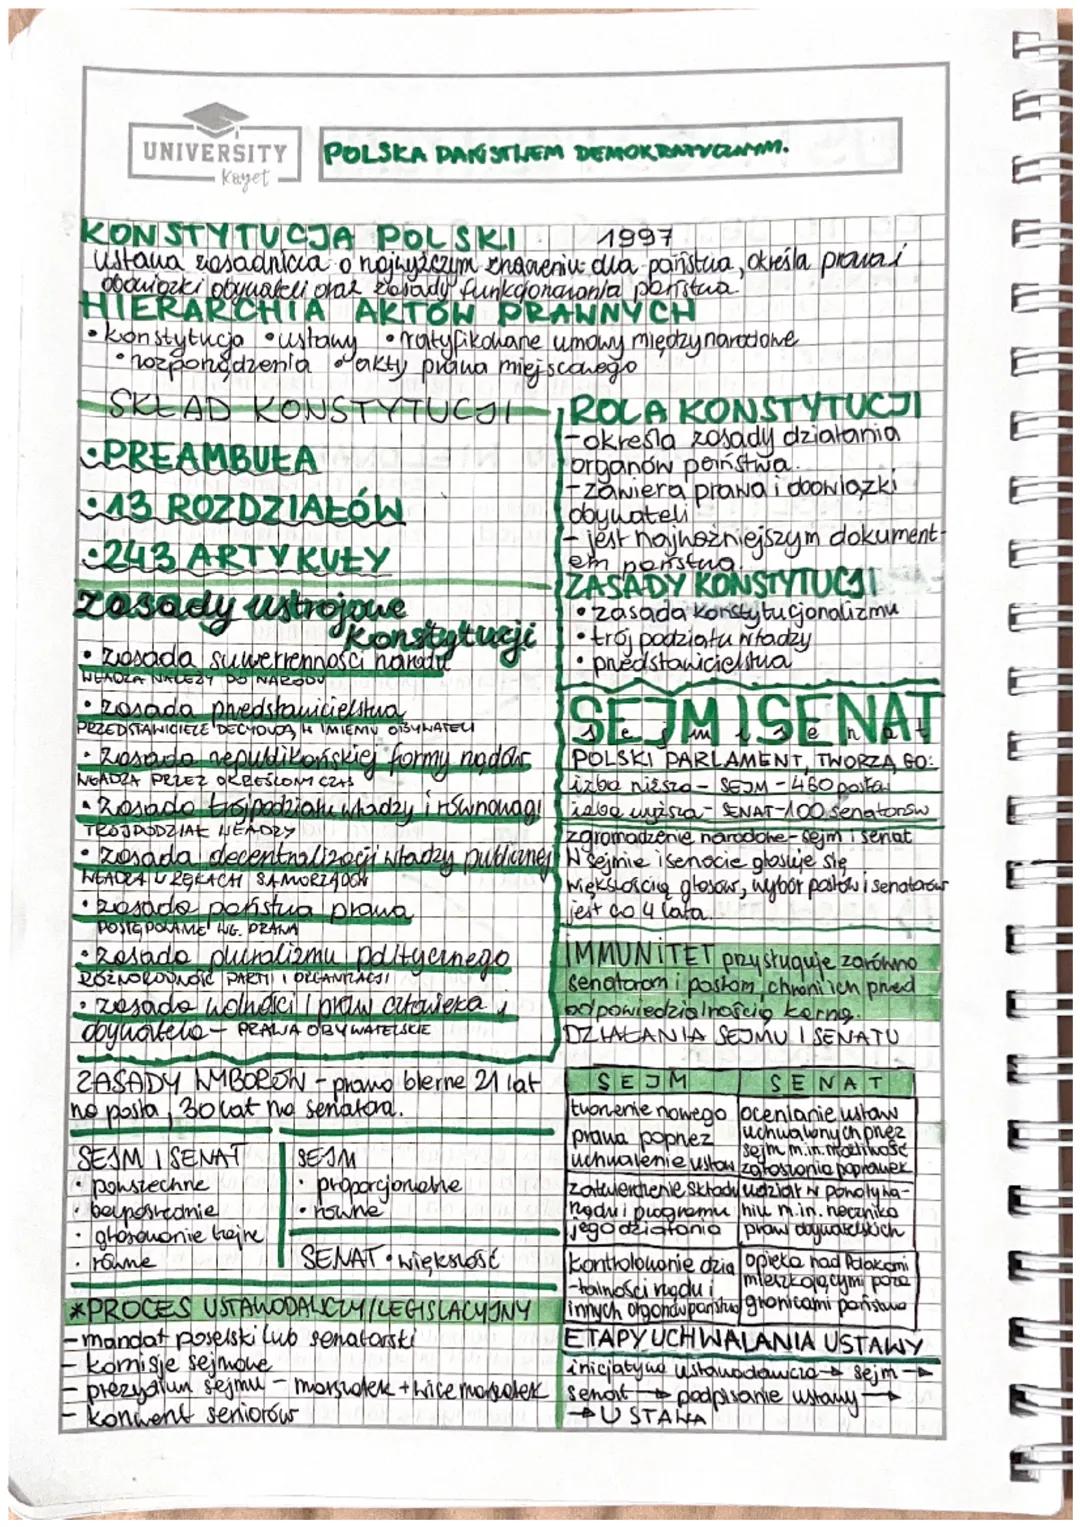 UNIVERSITY
Kayet
POLSKA PAŃSTWEM DEMOKRATYCZNYM.
KONSTYTUCJA POLSKI 1997
ustawa zasadnicza o najwyższym znaczeniu dla państwa, określa prawa i
obowiązki obywateli oraz zasady funkcjonowania państwa.
HIERARCHIA AKTÓW PRAWNYCH
• konstytucja • ustawy • ratyfikowane umowy międzynarodowe
• rozporządzenia • akty prawa miejscowego
SKŁAD KONSTYTUCJI
• PREAMBUŁA
• 13 ROZDZIAŁÓW
• 243 ARTYKUŁY
Zasady ustrojowe
Konstytucji
• zasada suwerenności narodu
WŁADZA NALEŻY DO NARODU
• zasada przedstawicielstwa
PRZEDSTAWICIELE DECYDUJĄ W IMIENIU OBYWATELI
• Zasada republikańskiej formy rządów
WŁADZA PRZEZ OKREŚLONY CZAS
• Zasada trójpodziału władzy i równowagi
TRÓJPODZIAŁ WŁADZY
• zasada decentralizacji władzy publicznej
WŁADZA W RĘKACH SAMORZĄDÓW
• zasada państwa prawa
POSTĘPOWANIE WG. PRAWA
• zasada pluralizmu politycznego
RÓŻNORODNOŚĆ PARTII I ORGANIZACJI
• zasada wolności i praw człowieka i
obywatela - PRAWA OBYWATELSKIE
ZASADY WYBORÓW - prawo bierne 21 lat
na posła, 30 lat na senatora.
SEJM I SENAT
• powszechne
• bezpośrednie
• głosowanie tajne
• równe
SEJM
• proporcjonalne
• równe
SENAT • większość
*PROCES USTAWODAWCZY/LEGISLACYJNY
- mandat poselski lub senatorski
- komisje sejmowe
- prezydium sejmu - marszałek + wicemarszałek
- konwent seniorów
ROLA KONSTYTUCJI
- określa zasady działania
organów państwa.
- zawiera prawa i obowiązki
obywateli
- jest najważniejszym dokument-
em państwa.
ZASADY KONSTYTUCJI
• zasada konstytucjonalizmu
• trój podziału władzy
• przedstawicielstwa
SEJM I SENAT
POLSKI PARLAMENT, TWORZĄ GO:
izba niższa - SEJM - 460 posła
izba wyższa - SENAT - 100 senatorów
zgromadzenie narodowe - sejm i senat
W sejmie i senacie głosuje się
większością głosów, wybór posłów i senatorów
jest co 4 lata.
IMMUNITET przysługuje zarówno
senatorom i posłom, chroni ich przed
odpowiedzialnością karną.
DZIAŁANIA SEJMU I SENATU
SEJM SENAT
tworzenie nowego
prawa poprzez
uchwalenie ustaw
ocenianie ustaw
uchwalonych przez
sejm m.in. możliwość
zgłoszenia poprawek
zatwierdzenie składu
rządu i programu
jego działania
udział w powoływa-
niu m.in. rzecznika
praw obywatelskich
kontrolowanie dzia
-łalności rządu i
innych organów państwa
opieka nad Polakami
mieszkającymi poza
granicami państwa
ETAPY UCHWALANIA USTAWY
inicjatywa ustawodawcza → sejm →
senat → podpisanie ustawy →
→ USTAWA